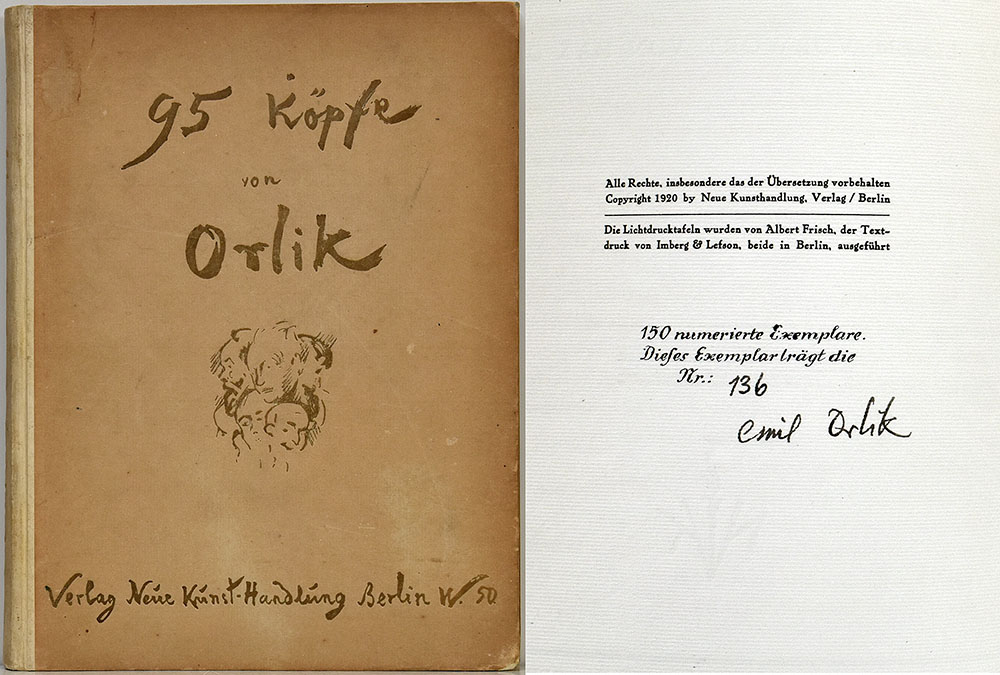 95 Köpfe
von
Orlik
Verlag Neue Kunst-Handlung Berlin W. 50
Alle Rechte, insbesondere das der Übersetzung vorbehalten
Copyright 1920 by Neue Kunsthandlung, Verlag / Berlin
Die Lichtdrucktafeln wurden von Albert Frisch, der Text-
druck von Imberg & Lefson, beide in Berlin, ausgeführt
150 numerierte Exemplare.
Dieſes Exemplar trägt die
Nr.: 136
Emil Orlik